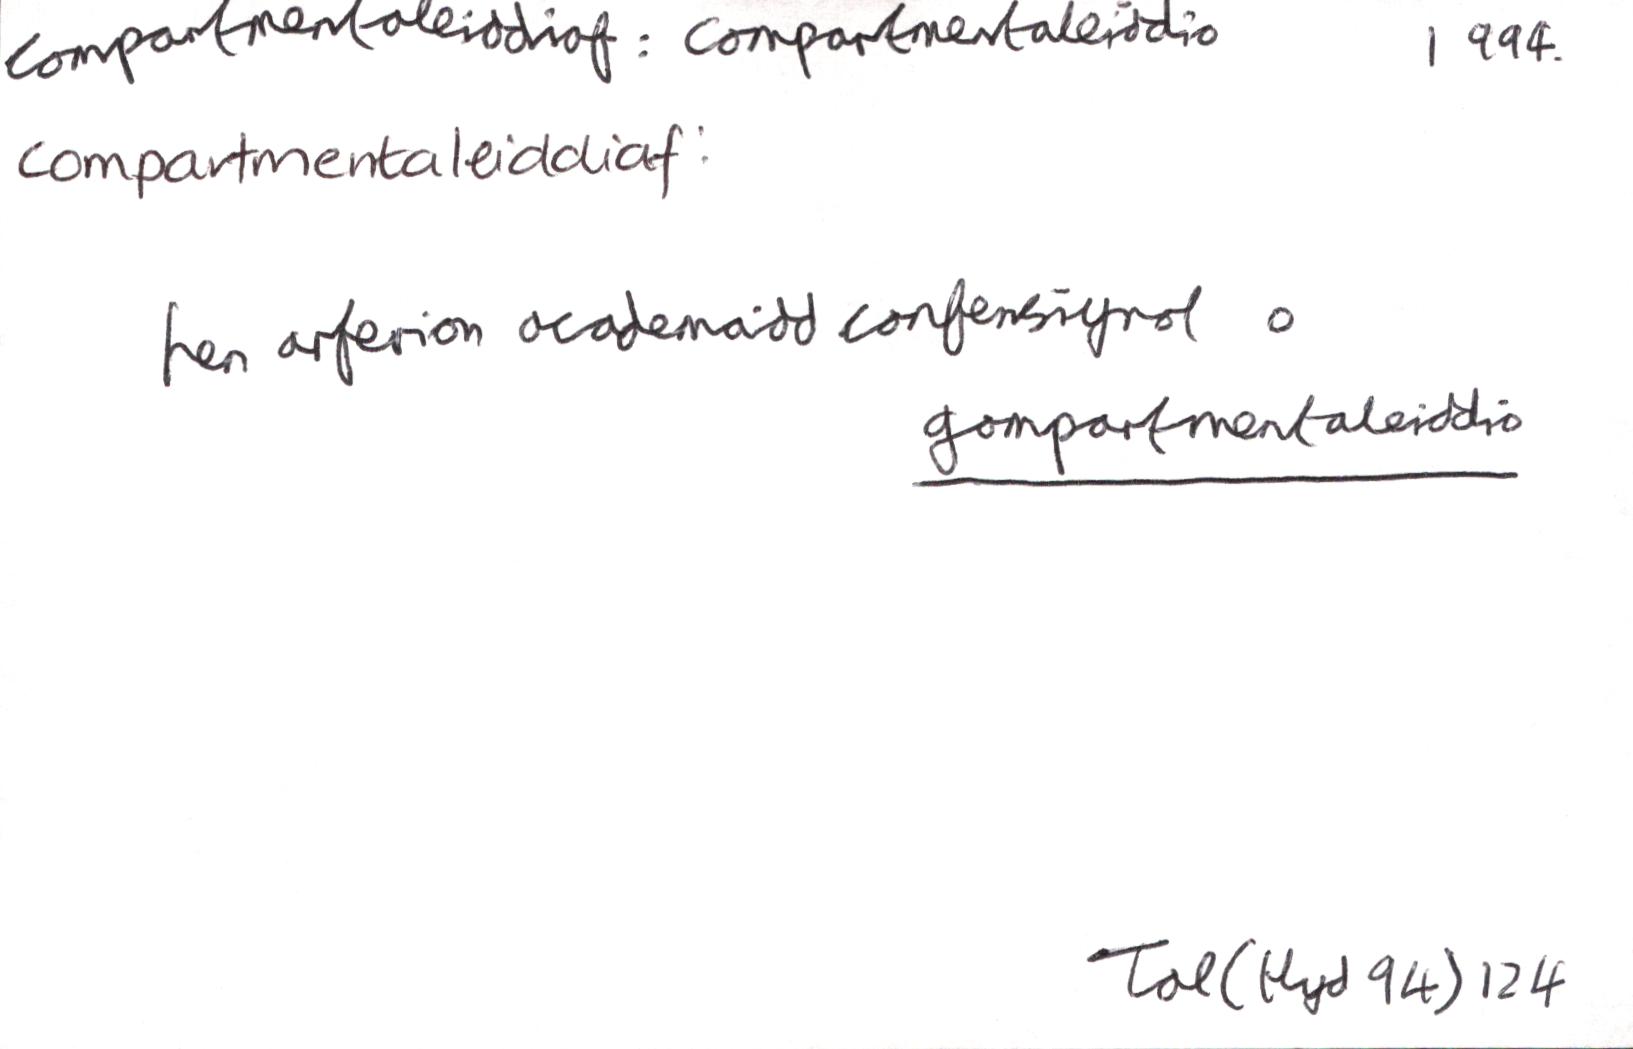 compartmentaleiddiaf: compartmentaleiddio 1994.
compartmentaleiddiaf:
hen arferion academaidd confensiynol o
gompartmentaleiddio
Tal (Hyd 94) 124